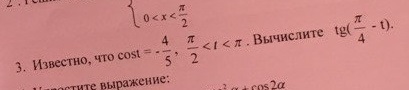 0 < x < π/2
3. Известно, что cost = -4/5, π/2 < t < π. Вычислите tg(π/4 - t).
выражение:
+ cos2α